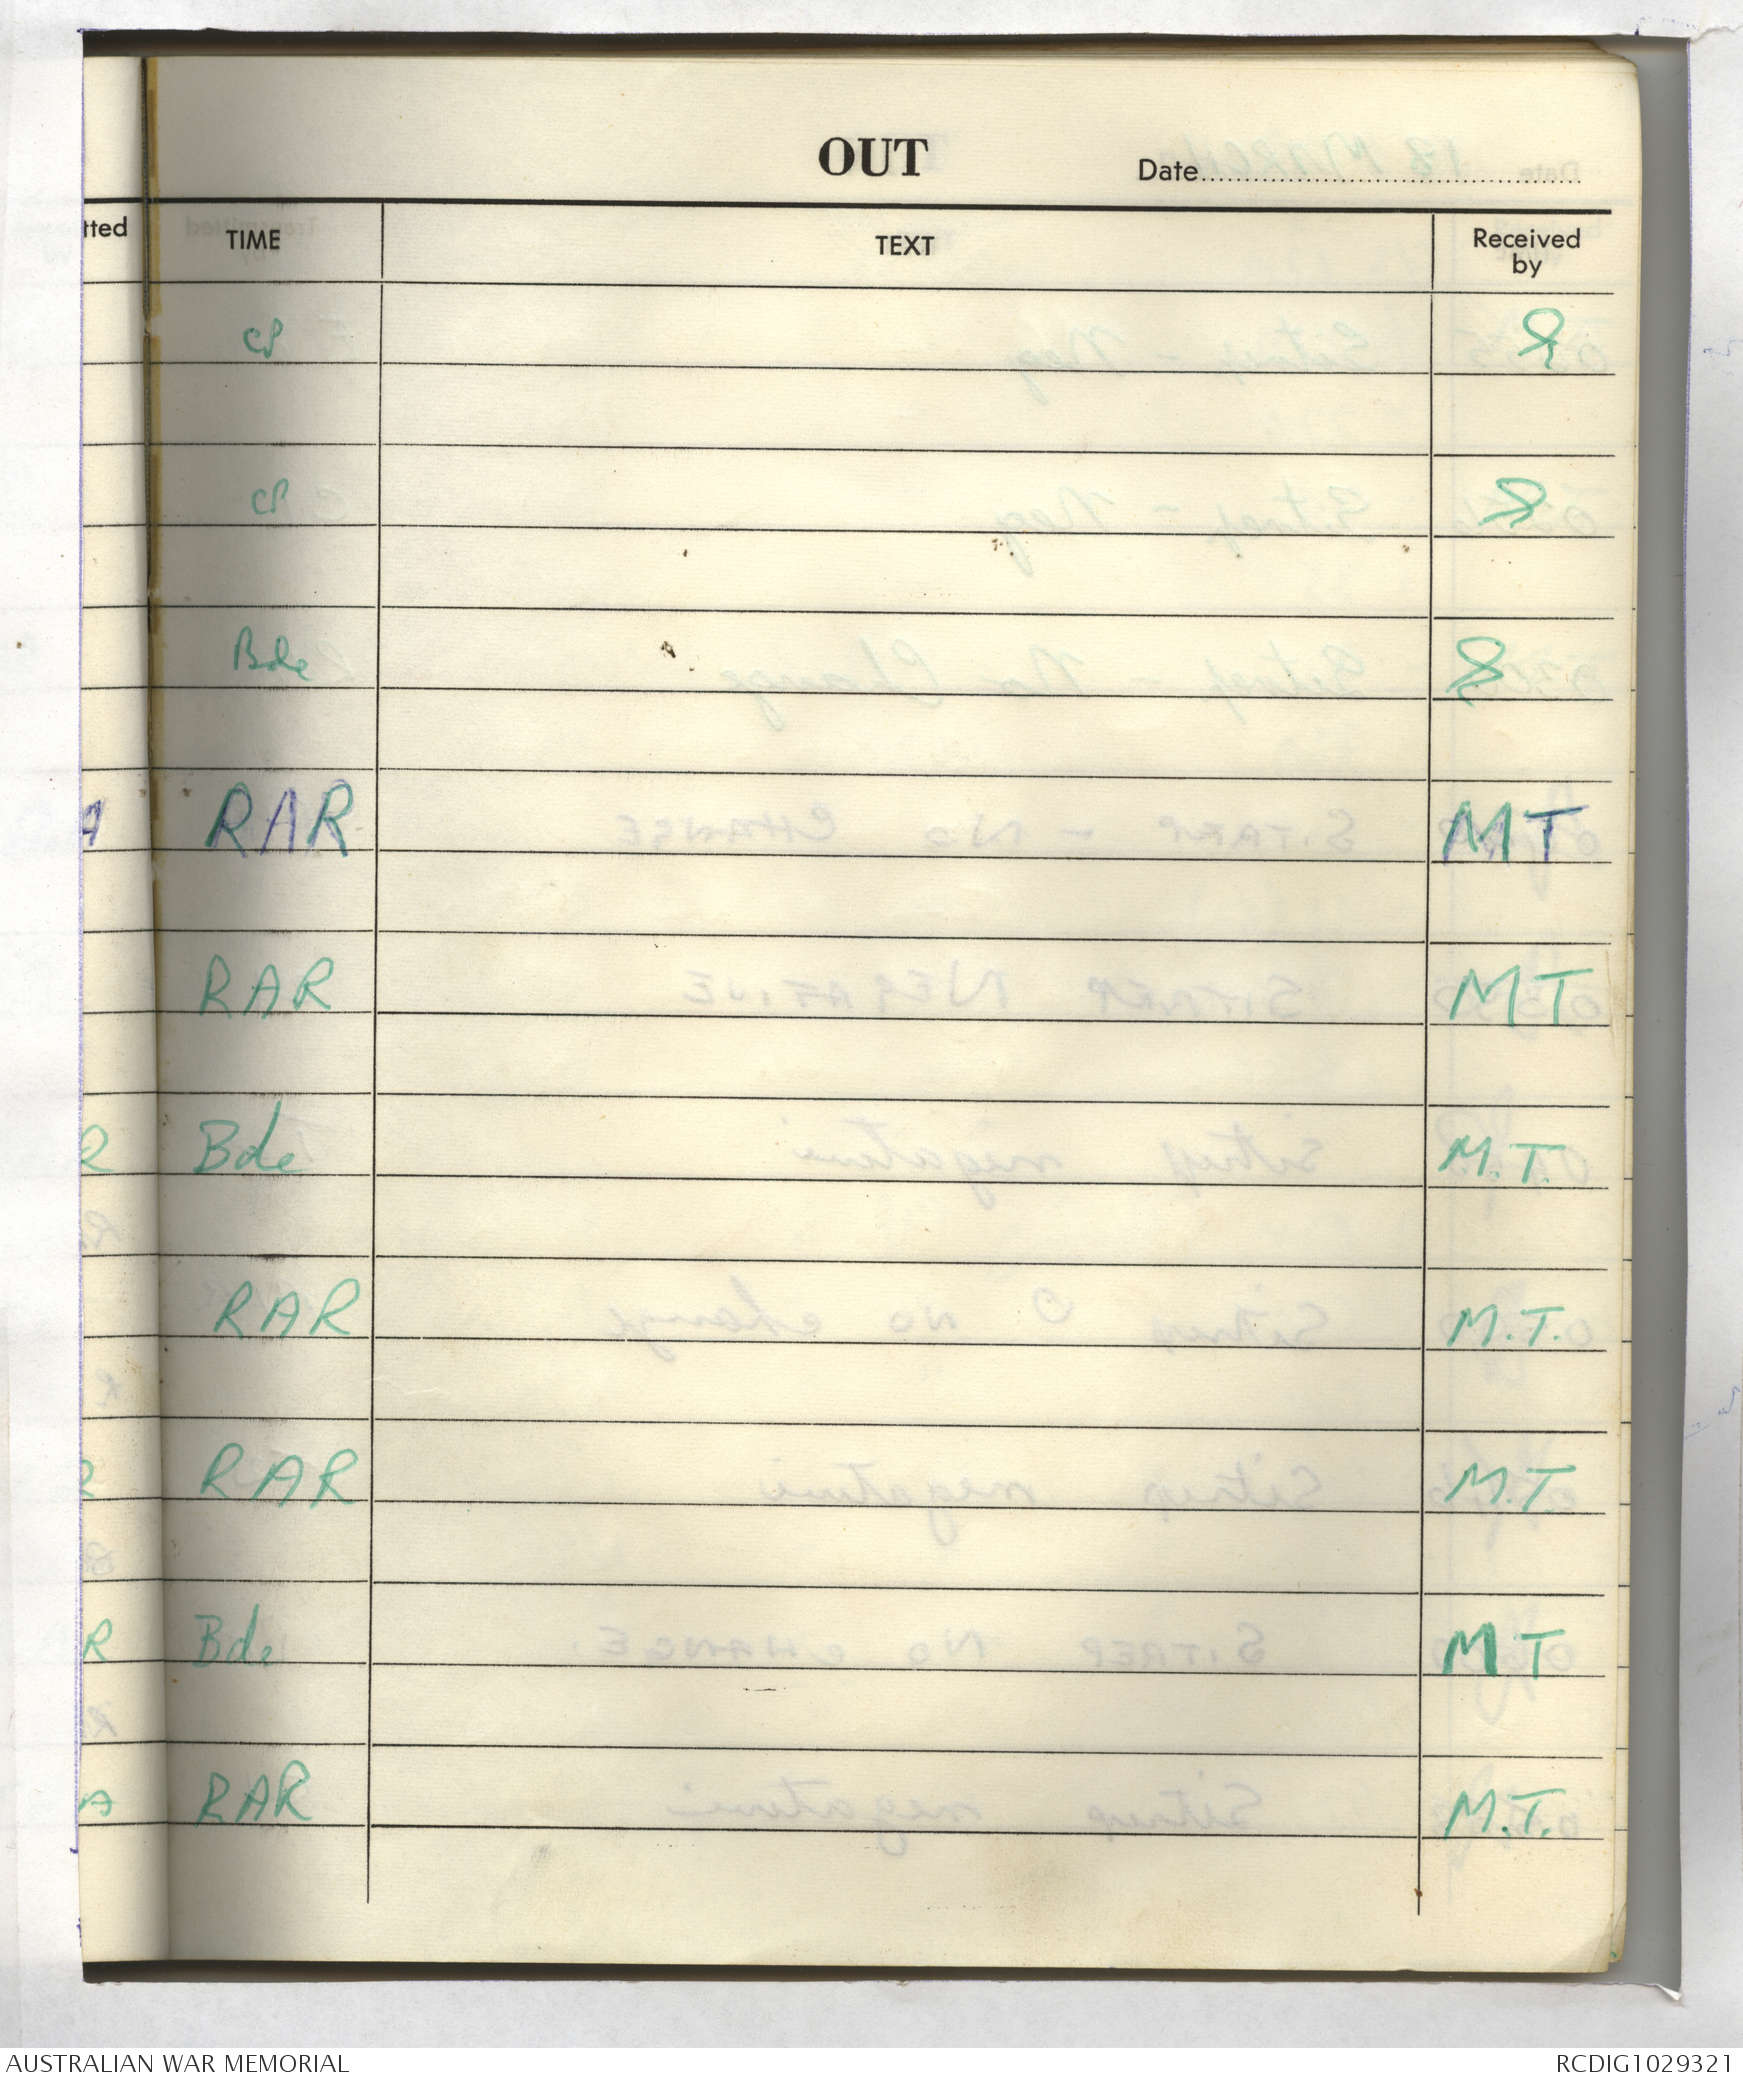 OUT
Date
tted TIME TEXT Received by
CP
CP
Bde
A RAR MT
RAR MT
R Bde M.T.
RAR M.T.
R RAR M.T.
R Bde MT
A RAR M.T.
AUSTRALIAN WAR MEMORIAL RCDIG1029321